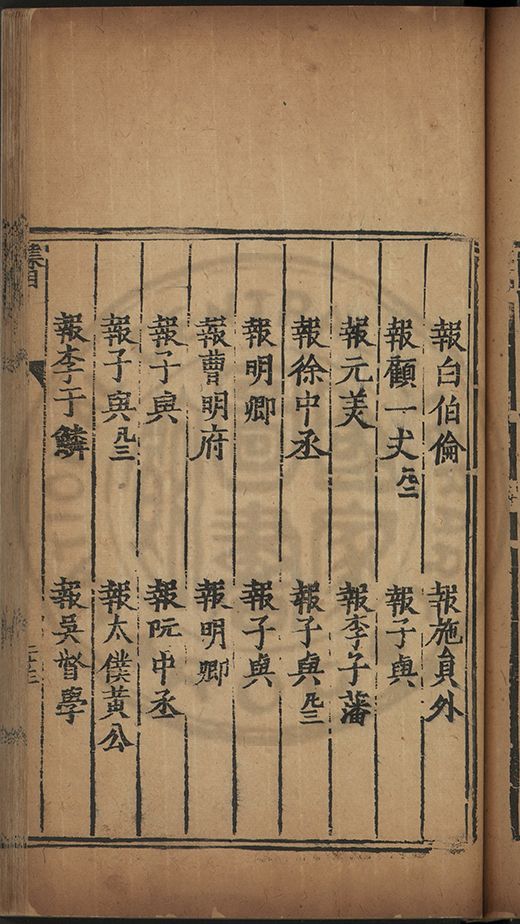 報白伯倫 報施員外
報顧一丈凡二 報子與
報元美 報李子藩
報徐中丞 報子與凡三
報明卿 報子與
報曹明府 報明卿
報子與 報阮中丞
報子與凡三 報太僕黃公
報李于鱗 報吳督學